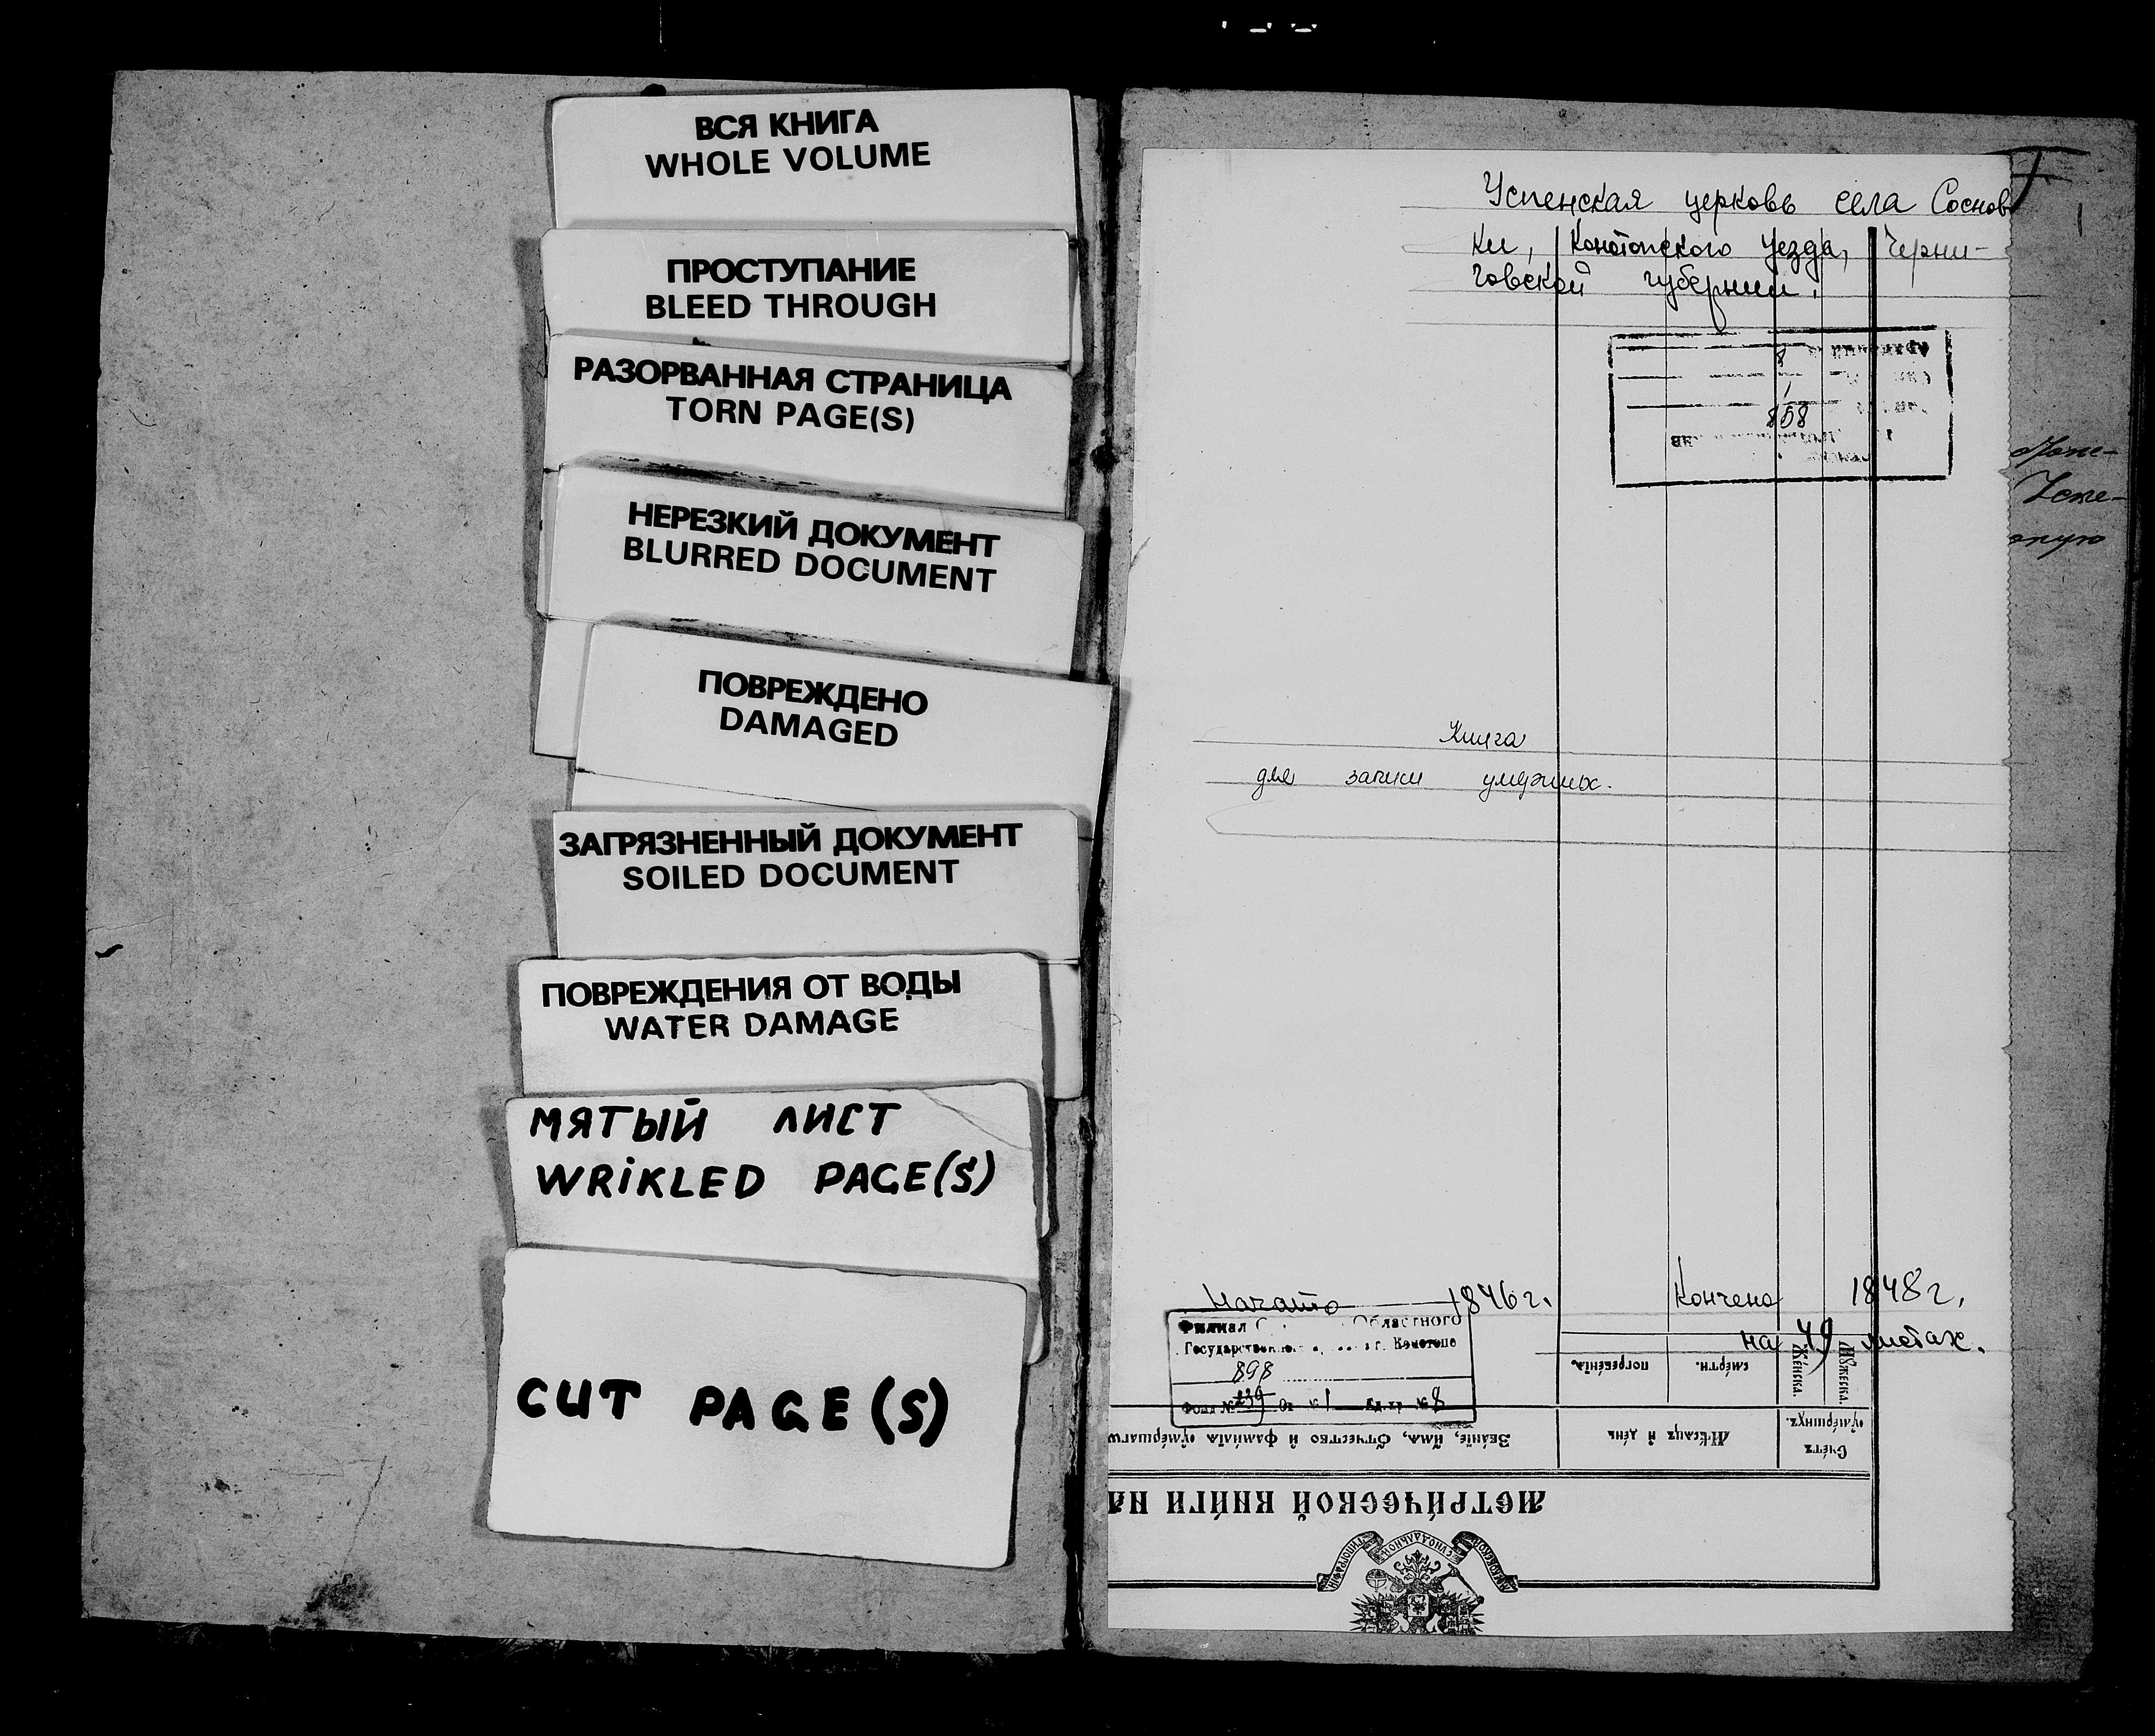 ВСЯ КНИГА
WHOLE VOLUME
ПРОСТУПАНИЕ
BLEED THROUGH
РАЗОРВАННАЯ СТРАНИЦА
TORN PAGE(S)
НЕРЕЗКИЙ ДОКУМЕНТ
BLURRED DOCUMENT
ПОВРЕЖДЕНО
DAMAGED
ЗАГРЯЗНЕННЫЙ ДОКУМЕНТ
SOILED DOCUMENT
ПОВРЕЖДЕНИЯ ОТ ВОДЫ
WATER DAMAGE
МЯТЫЙ ЛИСТ
WRIKLED PAGE(S)
CUT PAGE(S)
Успенская церковь села Соснов
ки, Конотопского уезда, Черни-
говской губернии.
8
1
858
Книга
для записи умерших.
Начато 1846 г. Кончено 1848 г.
на 49 листах.
Филиал Областного
Государственного г. Конотопе
898
Фонд № 239 Оп. № 1 Ед. хр. № 8
погребенїѧ. смерти. Женска. Мꙋжеска.
Званїе, имѧ, отчество и фамилїѧ ᲂумершагѡ Мѣсѧцъ и день Счетъ ᲂумершихъ.
МЕТРИЧЕСКОЙ КНИГИ НА